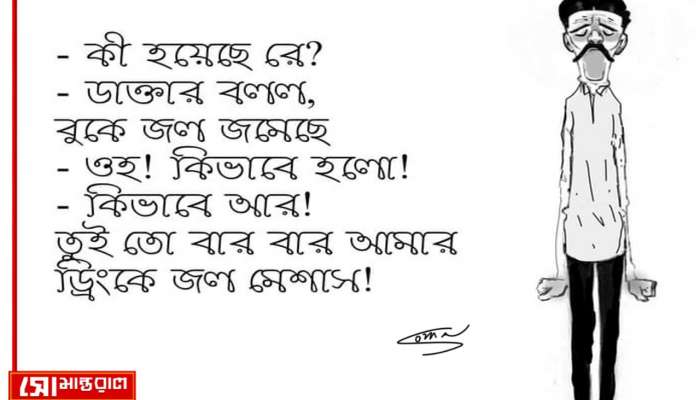 - কী হয়েছে রে?
- ডাক্তার বলল,
বুকে জল জমেছে
- ওহ! কিভাবে হলো!
- কিভাবে আর!
তুই তো বার বার আমার
ড্রিংকে জল মেশাস!
সোমান্তরাল